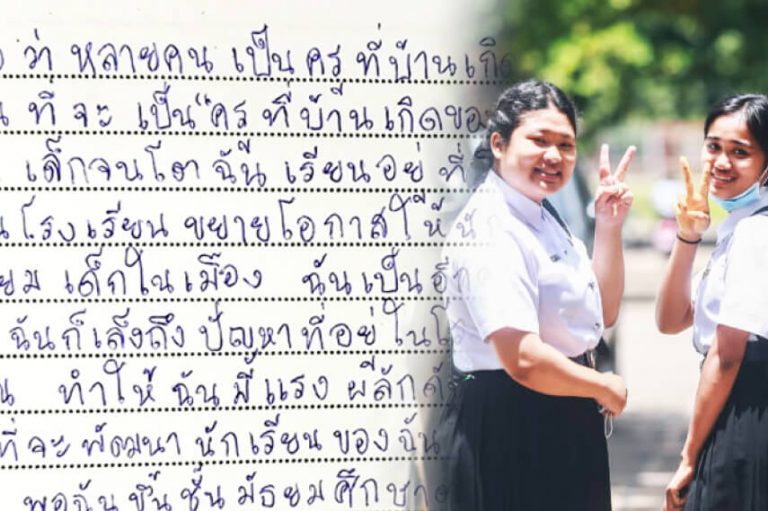 ว่า หลายคน เป็น ครู ที่บ้านเกิด
ที่ จะ เป็น "ครู ที่ บ้าน เกิดของ
เด็กจนโต ฉัน เรียน อยู่ ที่
โรงเรียน ขยายโอกาสให้
เด็กในเมือง ฉันเป็นอีก
ฉันก็เล็งถึง ปัญหา ที่อยู่ ใน
ทำให้ ฉัน มี แรง ผลักดัน
ที่จะ พัฒนา นักเรียน ของ ฉัน
พอฉัน ขึ้น ชั้น มัธยม ศึกษา